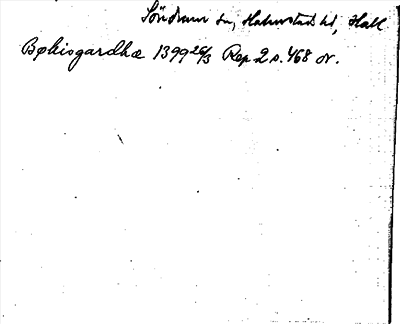 Söndrum sn, Halmstads hd, Hall
Bøkisgardhæ 1399 26/3 Rep 2 s. 468 or.